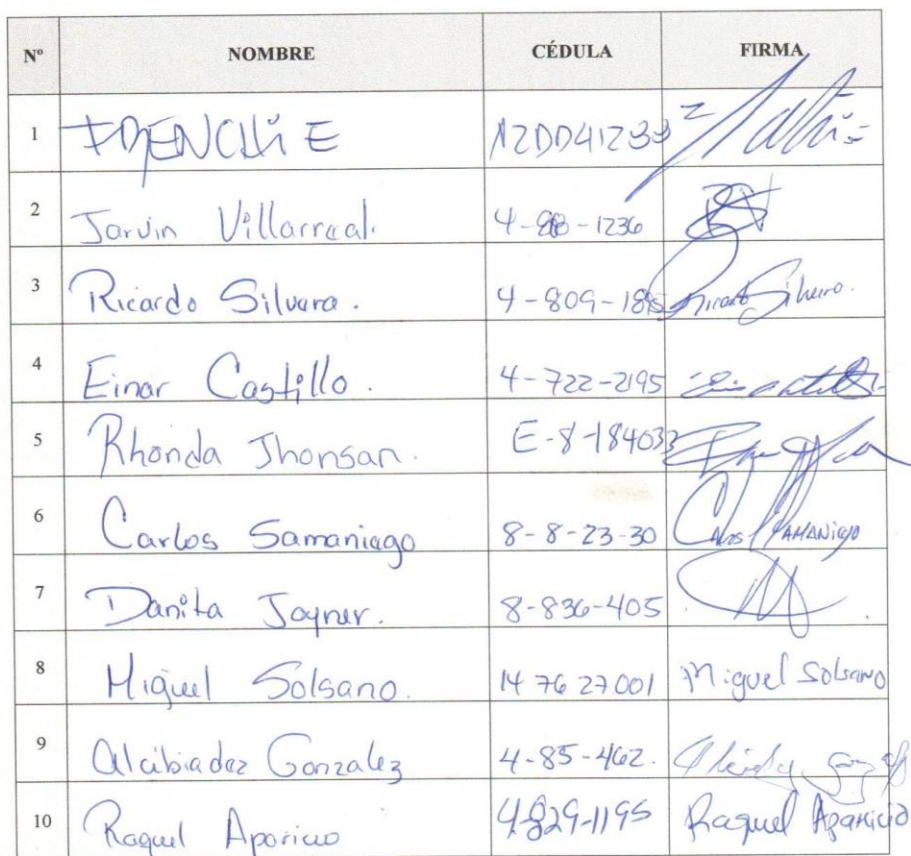 Nº NOMBRE CÉDULA FIRMA
1
2 Jarvin Villarreal. 4- -1236
3 Ricardo Silvera. 4-809-1895 Ricardo Silvera.
4 Einar Castillo. 4-722-2195
5 Rhonda Jhonsan. E-8-184033
6 Carlos Samaniago 8-8-23-30 Carlos SAMANIEGO
7 Danita Jayner. 8-836-405
8 Miguel Solsano. 14 76 27001 Miguel Solsano
9 Alcibiadez Gonzalez 4-85-462.
10 Raquel Aparicio 4-829-1195 Raquel Aparicio